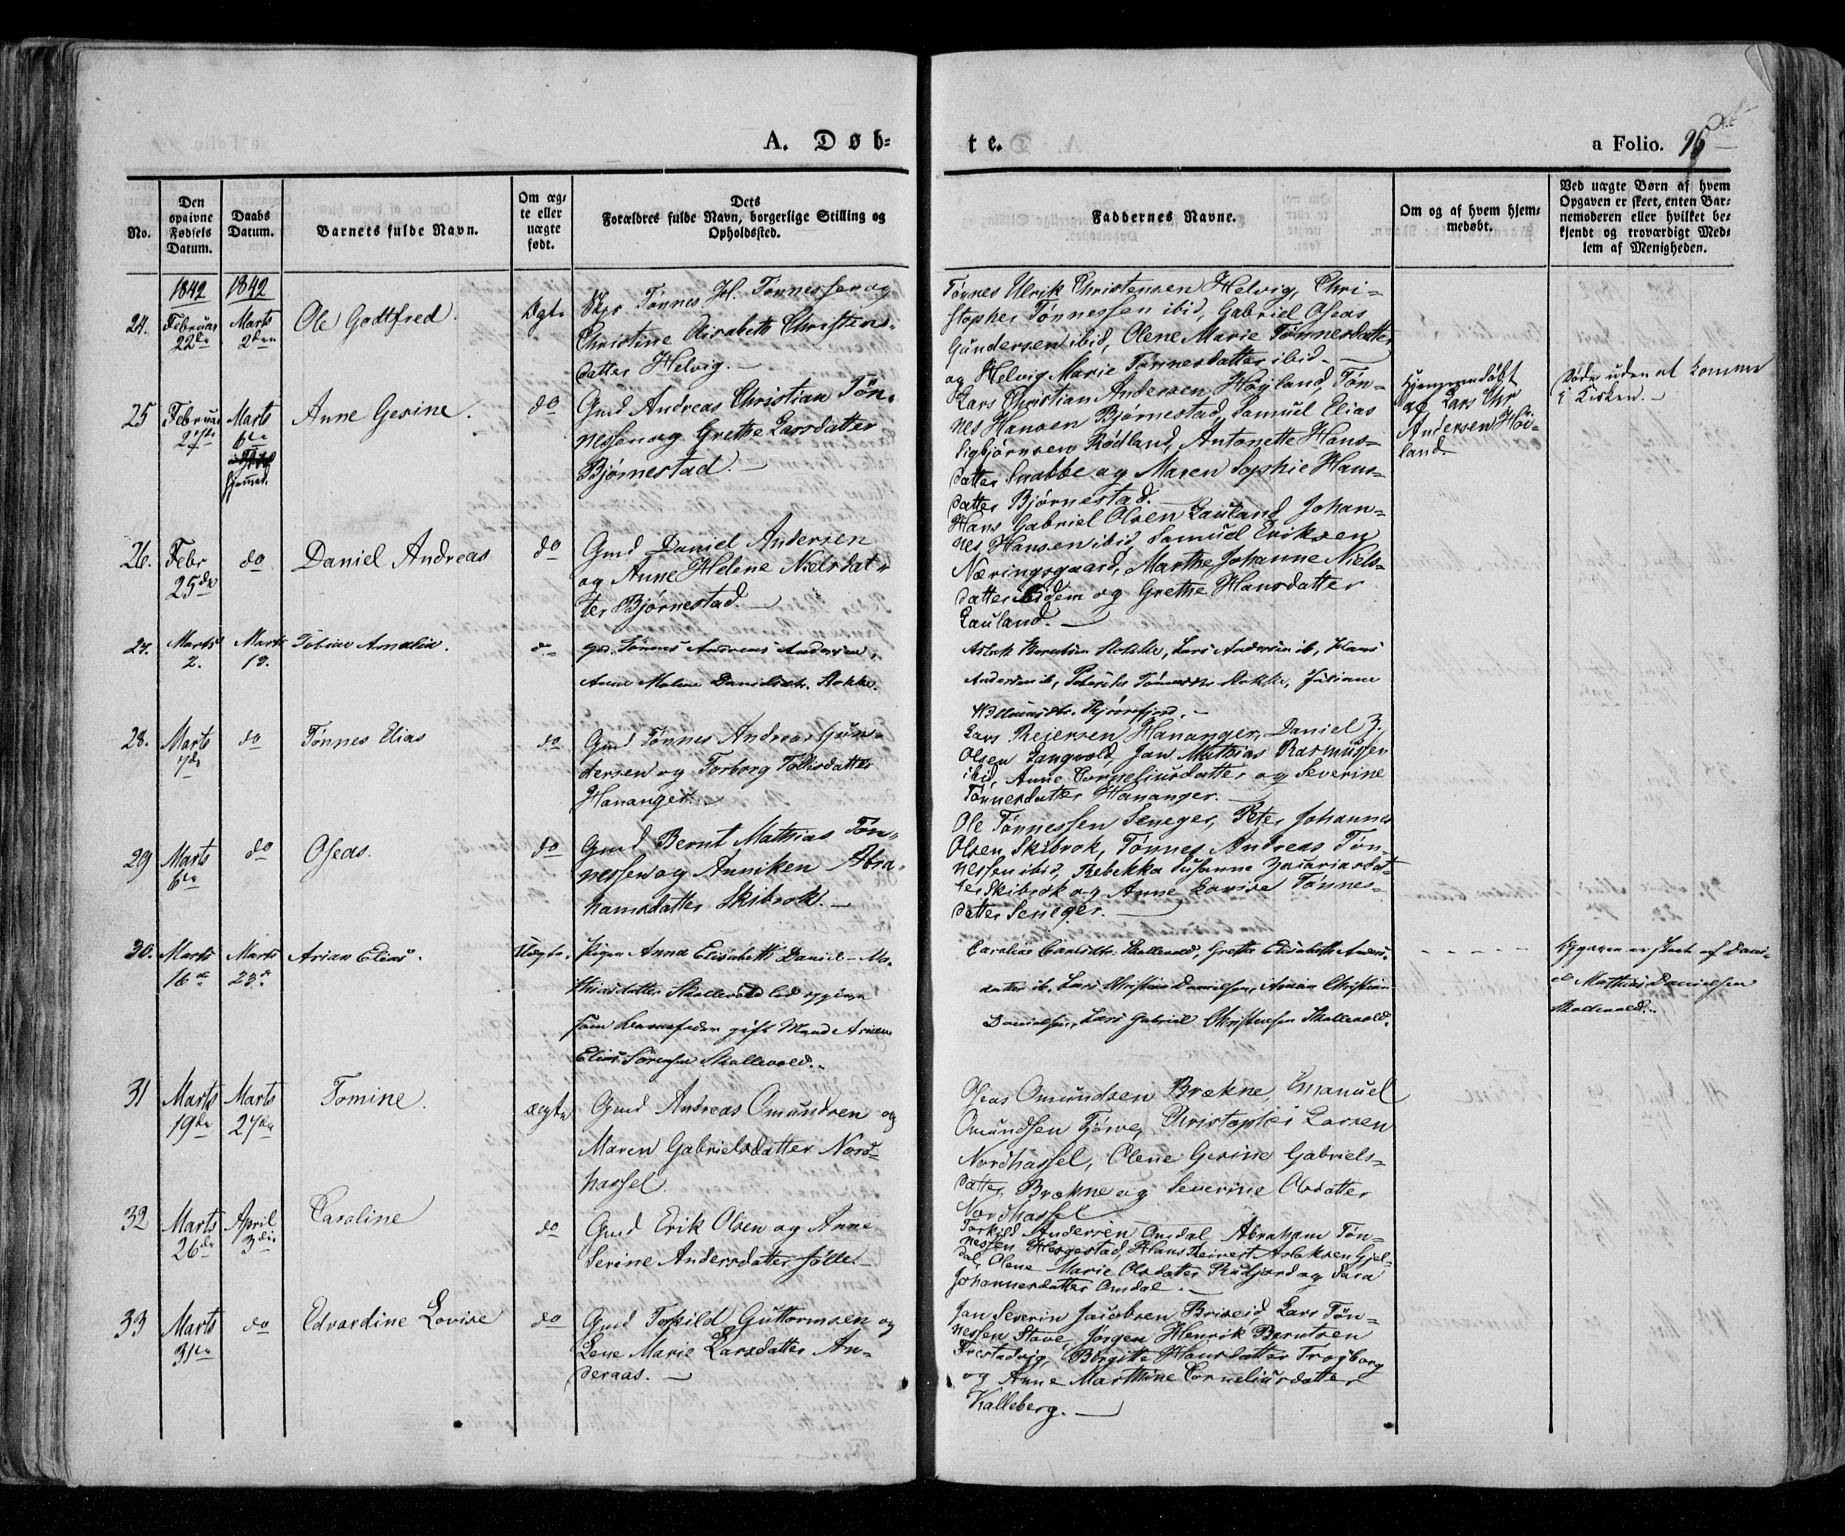 A. Døb-
te.
a Folio. 96
No.
Den opgivne Fødsels Datum.
Daabs Datum.
Barnets fulde Navn.
Om ægte eller uægte født.
Dets Forældres fulde Navn, borgerlige Stilling og Opholdssted.
Faddernes Navne.
Om og af hvem hjemmedøbt.
Ved uægte Børn af hvem Opgaven er skeet, enten Barnemoderen eller hvilket bekjendt og troværdigt Medlem af Menigheden.
1842
1842
24.
Februar
22de
Marts
2den
Ole Godtfred.
Tønnes Joh. Tønnessen og
Christine Elisabeth Christens-
datter Helvig.
Tønnes Ulrik Christensen Helvig, Chri-
stopher Tønnessen ibid, Gabriel Oseas
Gundersen ibid, Olene Marie Tønnesdatter
og Helvig Marie Tønnesdatter ibid.
25
Februar
Marts
6te
hjemmed.
Anne Gesine.
do
Gmd Andreas Christian Tøn-
nessen og Grethe Larsdatter
Bjørnestad.
Lars Christian Andersen Høyland, Tøn-
nes Hansen Bjørnestad, Samuel Elias
Sigbjørnsen Rødland, Antonette Hans-
datter Snabbe og Maren Sophie Hans-
datter Bjørnestad.
Hjemmedøbt
af Lars Chr
Andersen Høi-
land.
Døde uden at komme
i Kirken.
26.
Febr
25de
do
Daniel Andreas
do
Gmd Daniel Andersen
og Anne Helene Nielsdat-
ter Bjørnestad.
Hans Gabriel Olsen Lauland, Johan-
nes Hansen ibid Samuel Eriksen
Næringsgaard, Marthe Johanne Niels-
datter ibidem og Grethe Hansdatter
Lauland.
27.
Marts
2.
Marts
13.
Tobine Amalia.
do
Gd. Tønnes Andreas Andersen,
Anne Malene Danielsdtr. Stokke.
Aslak Berntsen Stokke, Lars Andersen ib, Hans
Andersen ib, Tønnesdtr Stokke, Juliane
28.
Marts
7de
do
Tønnes Elias
do
Gmd Tønnes Andreas Gun-
dersen og Torborg Tollisdatter
Hananger.
Lars Reiersen Hananger, Daniel Z.
Olsen Langvold, Jan Mathias Rasmussen
ibid, Anne Corneliusdatter og Severine
Tønnesdatter Hananger.
29
Marts
6te
do
Oseas.
do
Gmd Bernt Mathias Tøn-
nessen og Anniken Abra-
hamsdatter Skibrok.
Ole Tønnessen Seneger, Peter Johannes
Olsen Skibrok, Tønnes Andreas Tøn-
nessen ibid, Rebekka Susanne Zacariasdat-
ter Skibrok og Anne Lovise Tønnes-
datter Seneger.
30.
Marts
16de
Marts
23de
Arian Elias.
Uægte.
Pigen Anna Elisabeth Daniel Ma-
thiasdatter Skollevold lod opgive
som Barnefader gift Mand Arian
Elias Sørensen Skollevold.
Caroline Carlsdtr. Skollevold, Grethe Elisabeth Anders-
datter ib, Lars Christian Danielsen, Arian Christian
Danielsen, Lars Gabriel Christensen Skollevold.
Opgaven er skeet af Dani-
el Mathias Danielsen
Skollevold.
31
Marts
19de
Marts
27de
Tomine.
ægte
Gmd Andreas Omundsen og
Maren Gabrielsdatter Nord-
hassel.
Oseas Omundsen Brækne, Emanuel
Omundsen Tjørve, Christopher Larsen
Nordhassel, Olene Gesine Gabriels-
datter Brækne og Severine Olsdatter
Nordhassel
32
Marts
26de
April
3die
Caroline
do
Gmd Erik Olsen og Anne
Serine Andersdatter Jølle
Torkild Andersen Omdal, Abraham Tøn-
nessen Hesgestad, Hans Reinert Aslaksen Gjel-
dal, Olene Marie Olsdatter Rudjord og Sara
Johannesdatter Omdal.
33
Marts
31te
do
Edvardine Lovise
do
Gmd Torkild Guttormsen og
Lene Marie Larsdatter An-
deraas.
Jan Severin Jacobsen Briseid, Lars Tøn-
nessen Stave, Jørgen Henrik Berntsen
Frestadvig, Birgitte Hansdatter Trogborg
og Anne Marthine Corneliusdatter
Kalleberg.